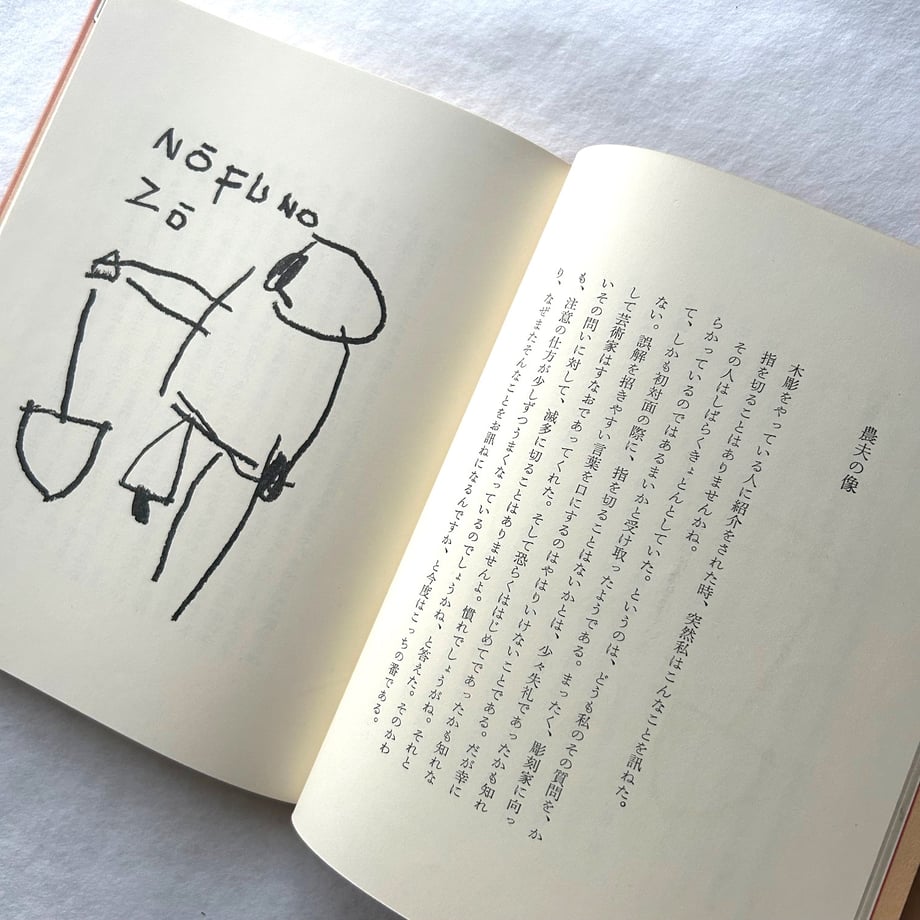 NŌFU NO
ZŌ
農夫の像
木彫をやっている人に紹介をされた時、突然私はこんなことを訊ねた。
指を切ることはありませんかね。
その人はしばらくきょとんとしていた。というのは、どうも私のその質問を、か
らかっているのではあるまいかと受け取ったようである。まったく、彫刻家に向っ
て、しかも初対面の際に、指を切ることはないかとは、少々失礼であったかも知れ
ない。誤解を招きやすい言葉を口にするのはやはりいけないことである。だが幸に
して芸術家はすなおであってくれた。そして恐らくははじめてであったかも知れな
いその問いに対して、滅多に切ることはありませんよ。慣れでしょうかね。それと
も、注意の仕方が少しずつうまくなっているのでしょうかね、と答えた。そのかわ
り、なぜまたそんなことをお訊ねになるんですか、と今度はこっちの番である。